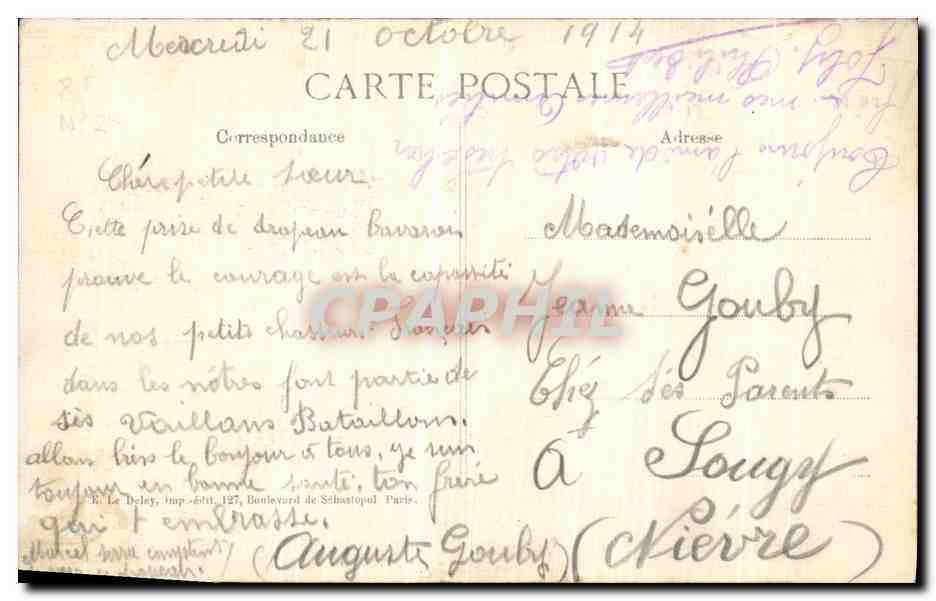 Mercredi 21 octobre 1914
CARTE POSTALE
Correspondance
Adresse
N° 2
Toujours l'ami de votre
mes meilleures
Joly Philibert
Chère petite sœur.
Cette prise de drapeau Bavarois
prouve le courage est la capassité
de nos petits chasseurs Français
dans les nôtres font partie de
sès Vaillans Bataillons.
allons bien le bonjour à tous, je suis
toujour en bonne santé, ton frère
qui t embrasse.
Auguste Gouby
Marcel
Mademoiselle
Jeanne Gouby
Chéz sés Parents
à Sougy
(Nièvre)
E. Le Deley, imp.-édit. 127, Boulevard de Sébastopol Paris.
CPAPHIL